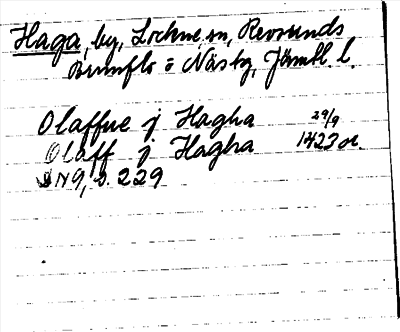 Haga, by, Lockne sn, Revsunds
Brunflo o Näsby, Jämtl l.
Olaffue j Hagha 29/9
Olaff j Hagha 1423 or.
SN9, s. 229